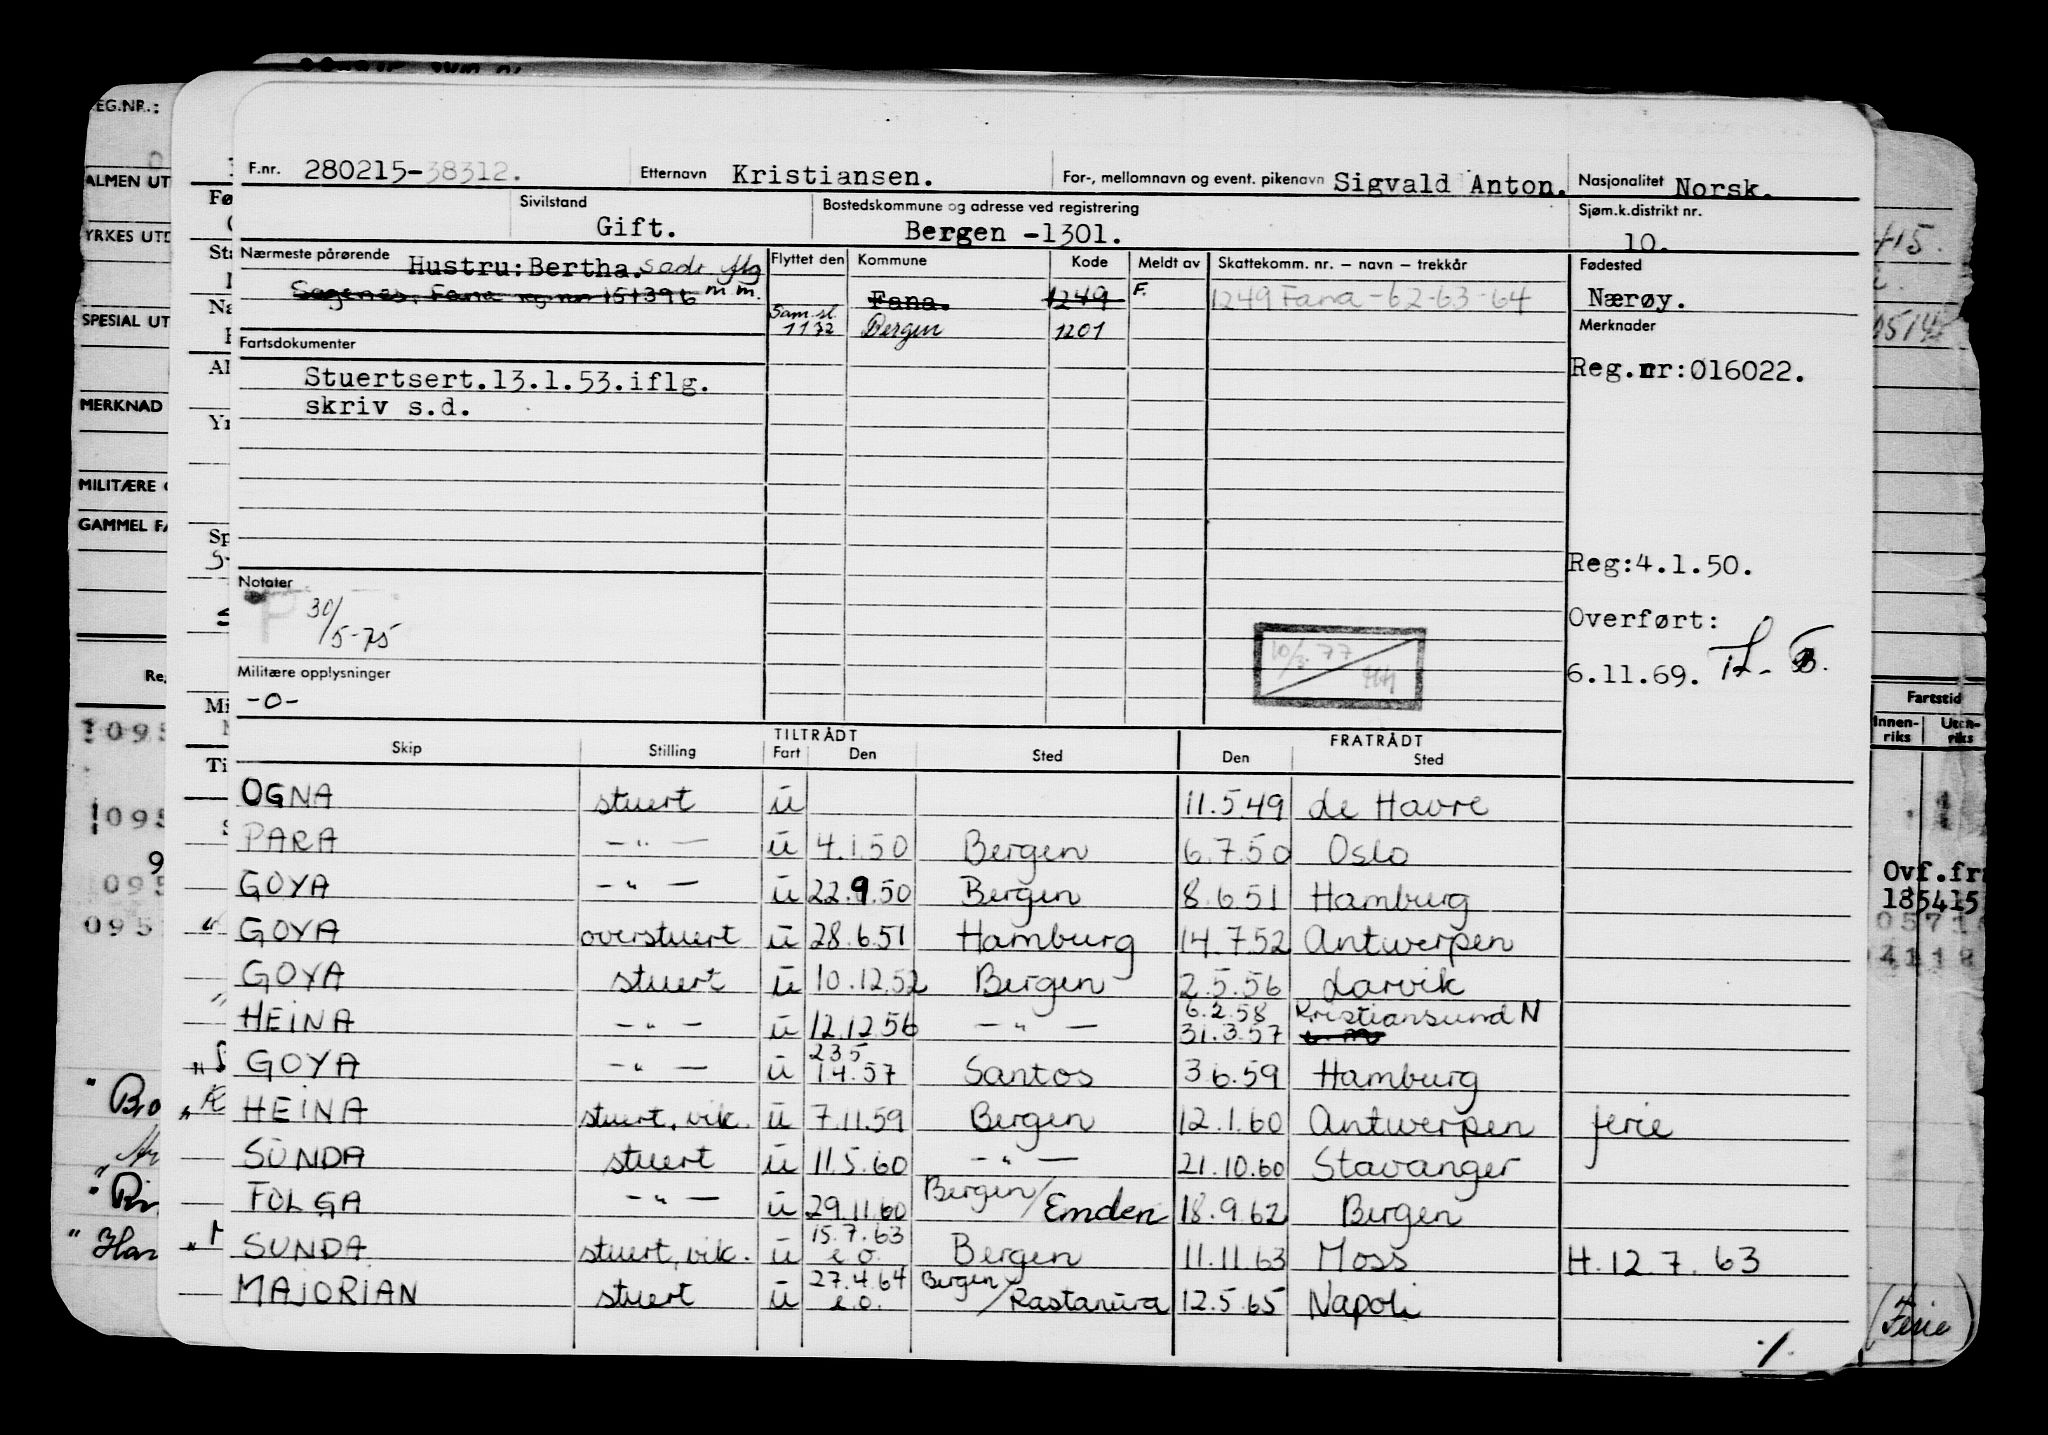 F.nr. 280215-38312. Etternavn Kristiansen. For-, mellomnavn og event. pikenavn Sigvald Anton. Nasjonalitet Norsk.
Sivilstand Gift. Bostedskommune og adresse ved registrering Bergen -1301. Sjøm.k.distrikt nr. 10.
Nærmeste pårørende Hustru: Bertha. Flyttet den Kommune Kode Meldt av Skattekomm. nr. – navn – trekkår Fødested
Sagenes, Fana 151396 m.m. Fana. 1249 F. 1249 Fana-62-63-64 Nærøy.
Sam.st. 1172 Bergen 1201 Merknader
Fartsdokumenter
Stuertsert.13.1.53.iflg. Reg.nr:016022.
skriv s.d.
Reg:4.1.50.
Notater
30/5-75
Overført:
10/3 77 HH
Militære opplysninger 6.11.69.
-0-
Skip Stilling TILTRÅDT Fart Den Sted FRATRÅDT Den Sted
OGNA stuert u 11.5.49 Le Havre
PARA -"- u 4.1.50 Bergen 6.7.50 Oslo
GOYA -"- u 22.9.50 Bergen 8.6.51 Hamburg
GOYA overstuert u 28.6.51 Hamburg 14.7.52 Antwerpen
GOYA stuert u 10.12.52 Bergen 2.5.56 Larvik
HEINA -"- u 12.12.56 -"- 6.2.58 31.3.57 Kristiansund N
GOYA -"- u 23.5 1.4.57 Santos 3.6.59 Hamburg
HEINA stuert, vik. u 7.11.59 Bergen 12.1.60 Antwerpen ferie
SUNDA stuert u 11.5.60 -"- 21.10.60 Stavanger
TOLGA -"- u 29.11.60 Bergen/Emden 18.9.62 Bergen
SUNDA stuert, vik. u 15.7.63 e.o. Bergen 11.11.63 Moss H.12.7.63
MAJORIAN stuert u 27.4.64 e.o. Bergen/Rastanura 12.5.65 Napoli
./.
EG.NR.:
ALMEN UT
YRKES UTD
SPECIAL UT
MERKNAD
MILITÆRE
GAMMEL FA
Fartstid
Innen-riks Uten-riks
Ovf.fr
185415
(Ferie)